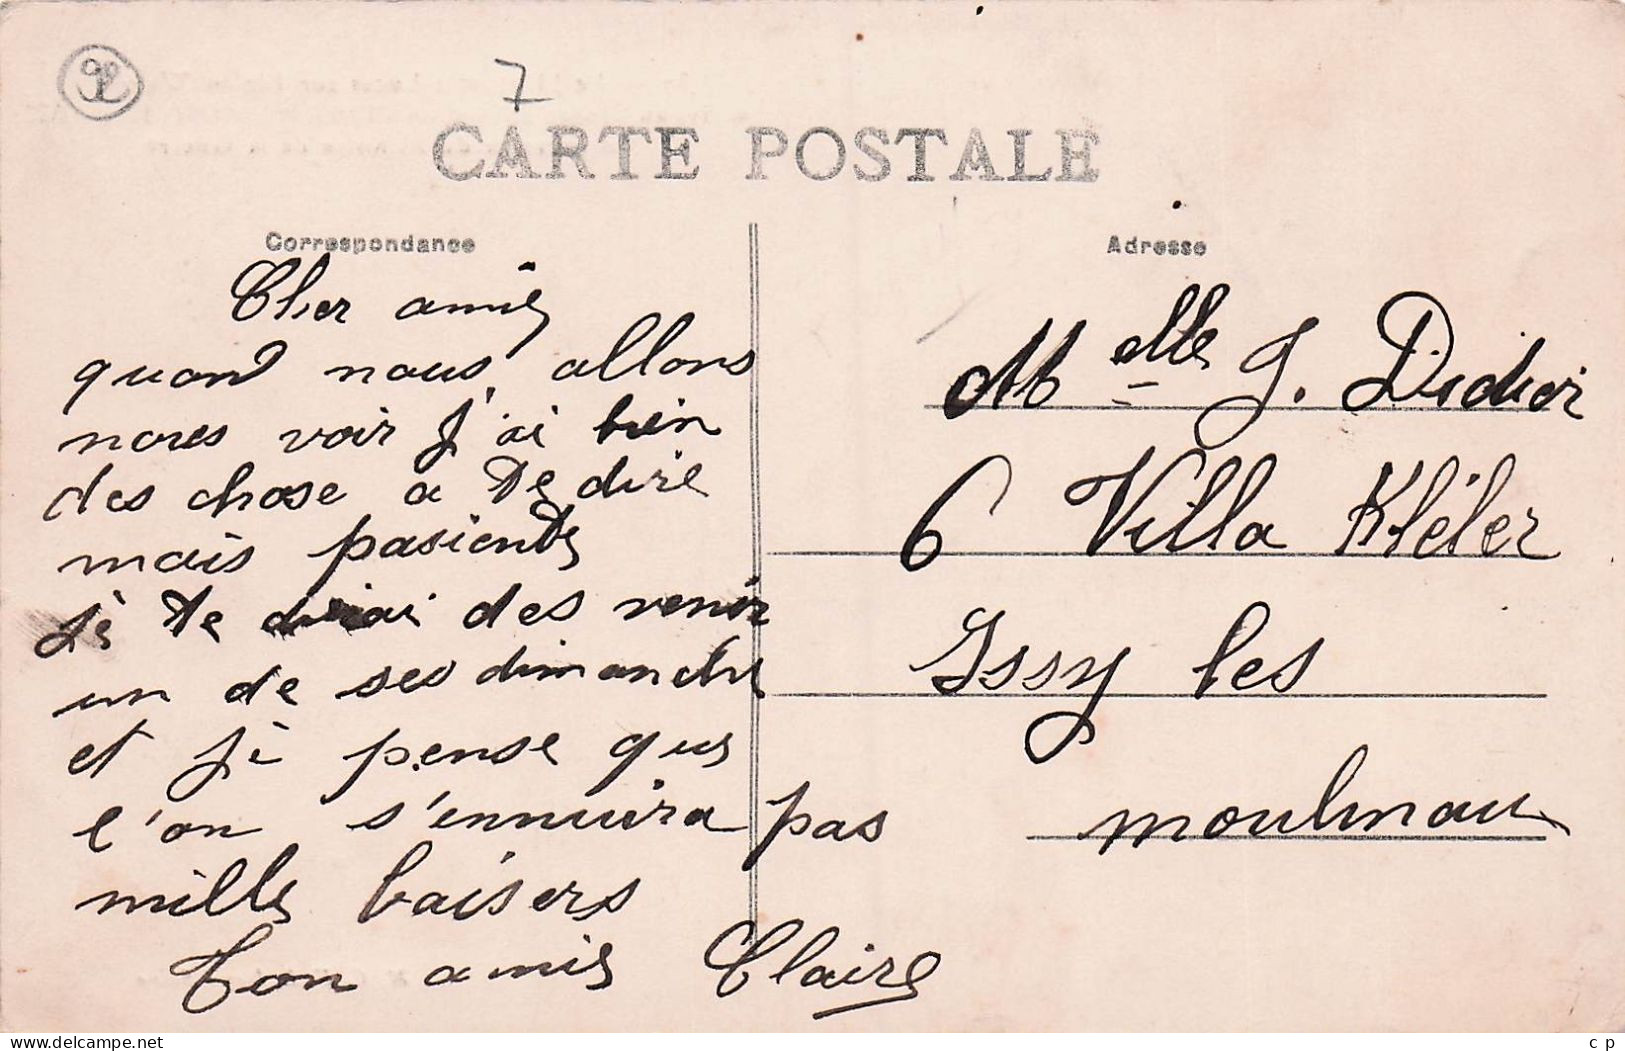 7
CARTE POSTALE
Correspondance
Cher amie
quand nous allons
nous voir j'ai bien
des chose a te dire
mais pasiente
je te dirai des venir
un de ses dimanche
et je pense que
l'on s'ennuira pas
mille baisers
Ton amie Claire
Adresse
Melle J. Didier
6 Villa Kléber
Issy les
moulinau
delcampe.net
c p